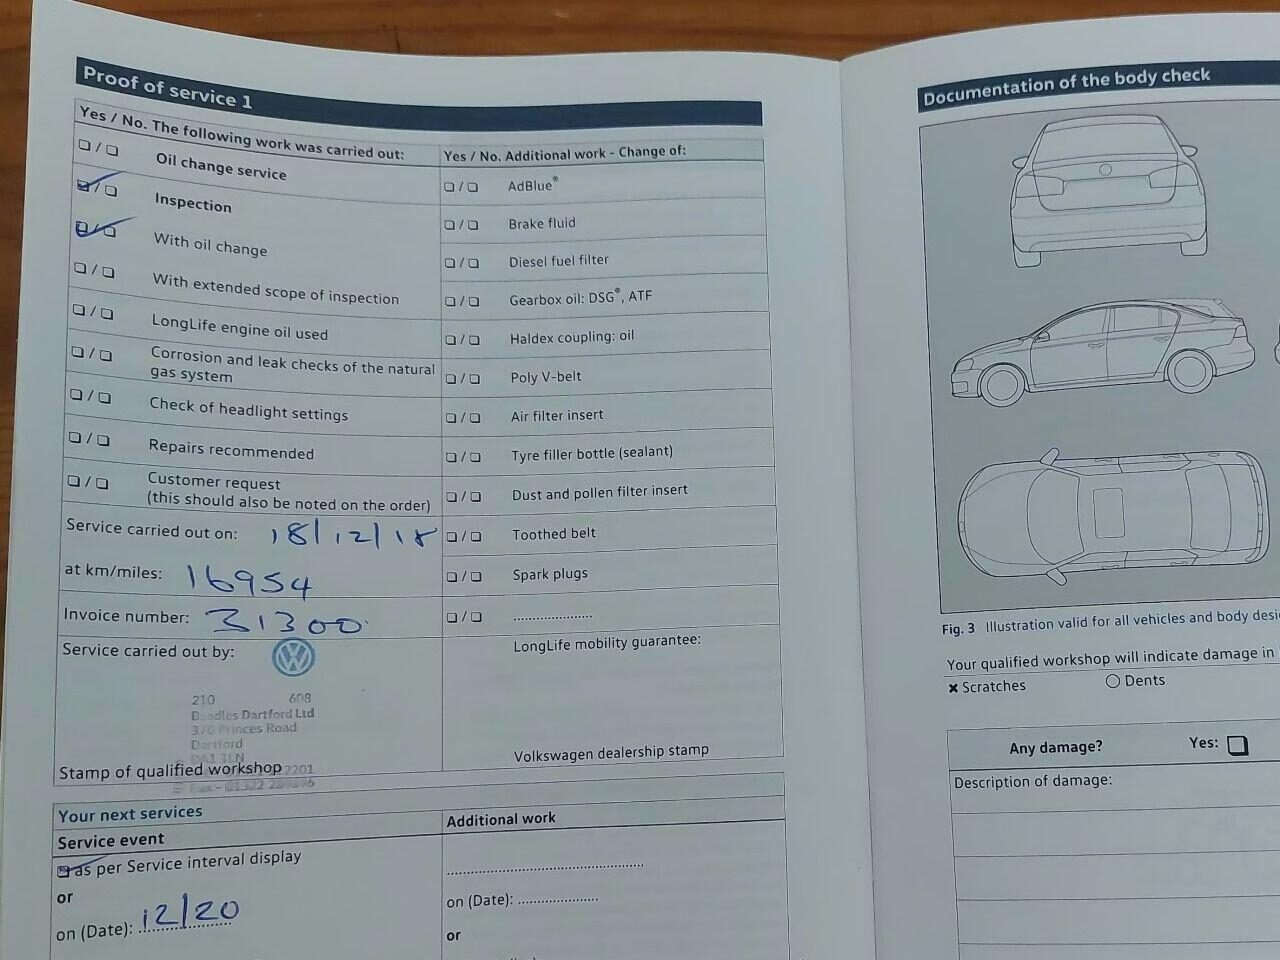 Proof of service 1
Yes / No. The following work was carried out:
Oil change service
Inspection
With oil change
With extended scope of inspection
LongLife engine oil used
Corrosion and leak checks of the natural
gas system
Check of headlight settings
Repairs recommended
Customer request
(this should also be noted on the order)
Service carried out on: 18/12/18
at km/miles: 16954
Invoice number: 31300
Service carried out by:
210 608
Beadles Dartford Ltd
370 Princes Road
Dartford
DA1 1LN
2201
Stamp of qualified workshop
Fax - 01322
Yes / No. Additional work - Change of:
AdBlue®
Brake fluid
Diesel fuel filter
Gearbox oil: DSG®, ATF
Haldex coupling: oil
Poly V-belt
Air filter insert
Tyre filler bottle (sealant)
Dust and pollen filter insert
Toothed belt
Spark plugs
LongLife mobility guarantee:
Volkswagen dealership stamp
Your next services
Service event
as per Service interval display
or
on (Date): 12/20
Additional work
on (Date):
or
Documentation of the body check
Fig. 3 Illustration valid for all vehicles and body
Your qualified workshop will indicate damage in
Scratches
Dents
Any damage? Yes:
Description of damage: